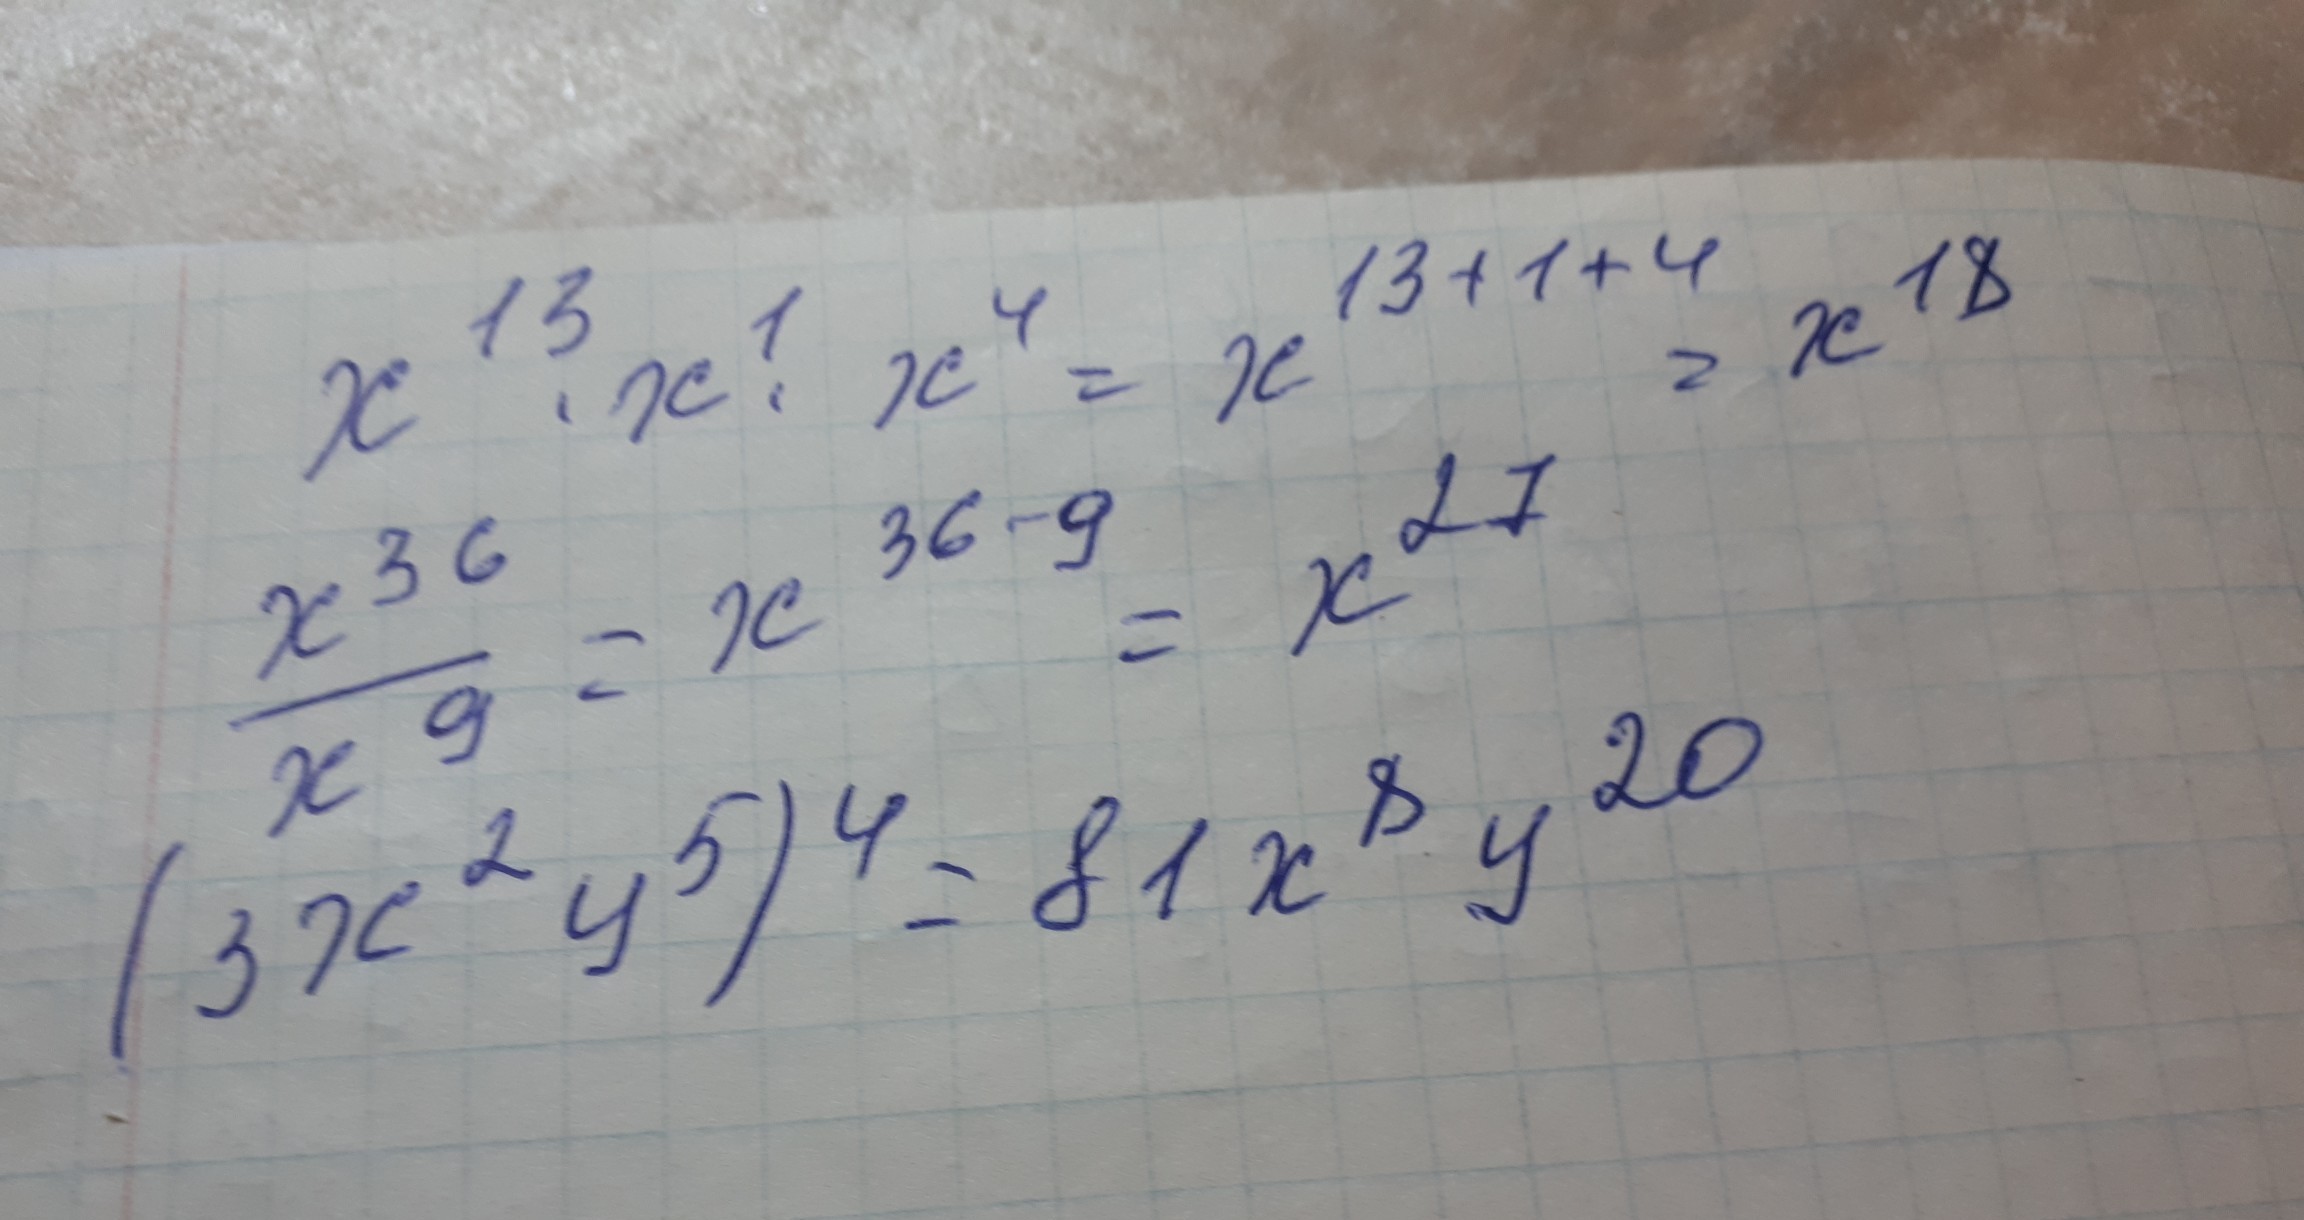 x¹³ · x¹ · x⁴ = x¹³⁺¹⁺⁴ = x¹⁸
x³⁶/x⁹ = x³⁶⁻⁹ = x²⁷
(3x²y⁵)⁴ = 81x⁸y²⁰